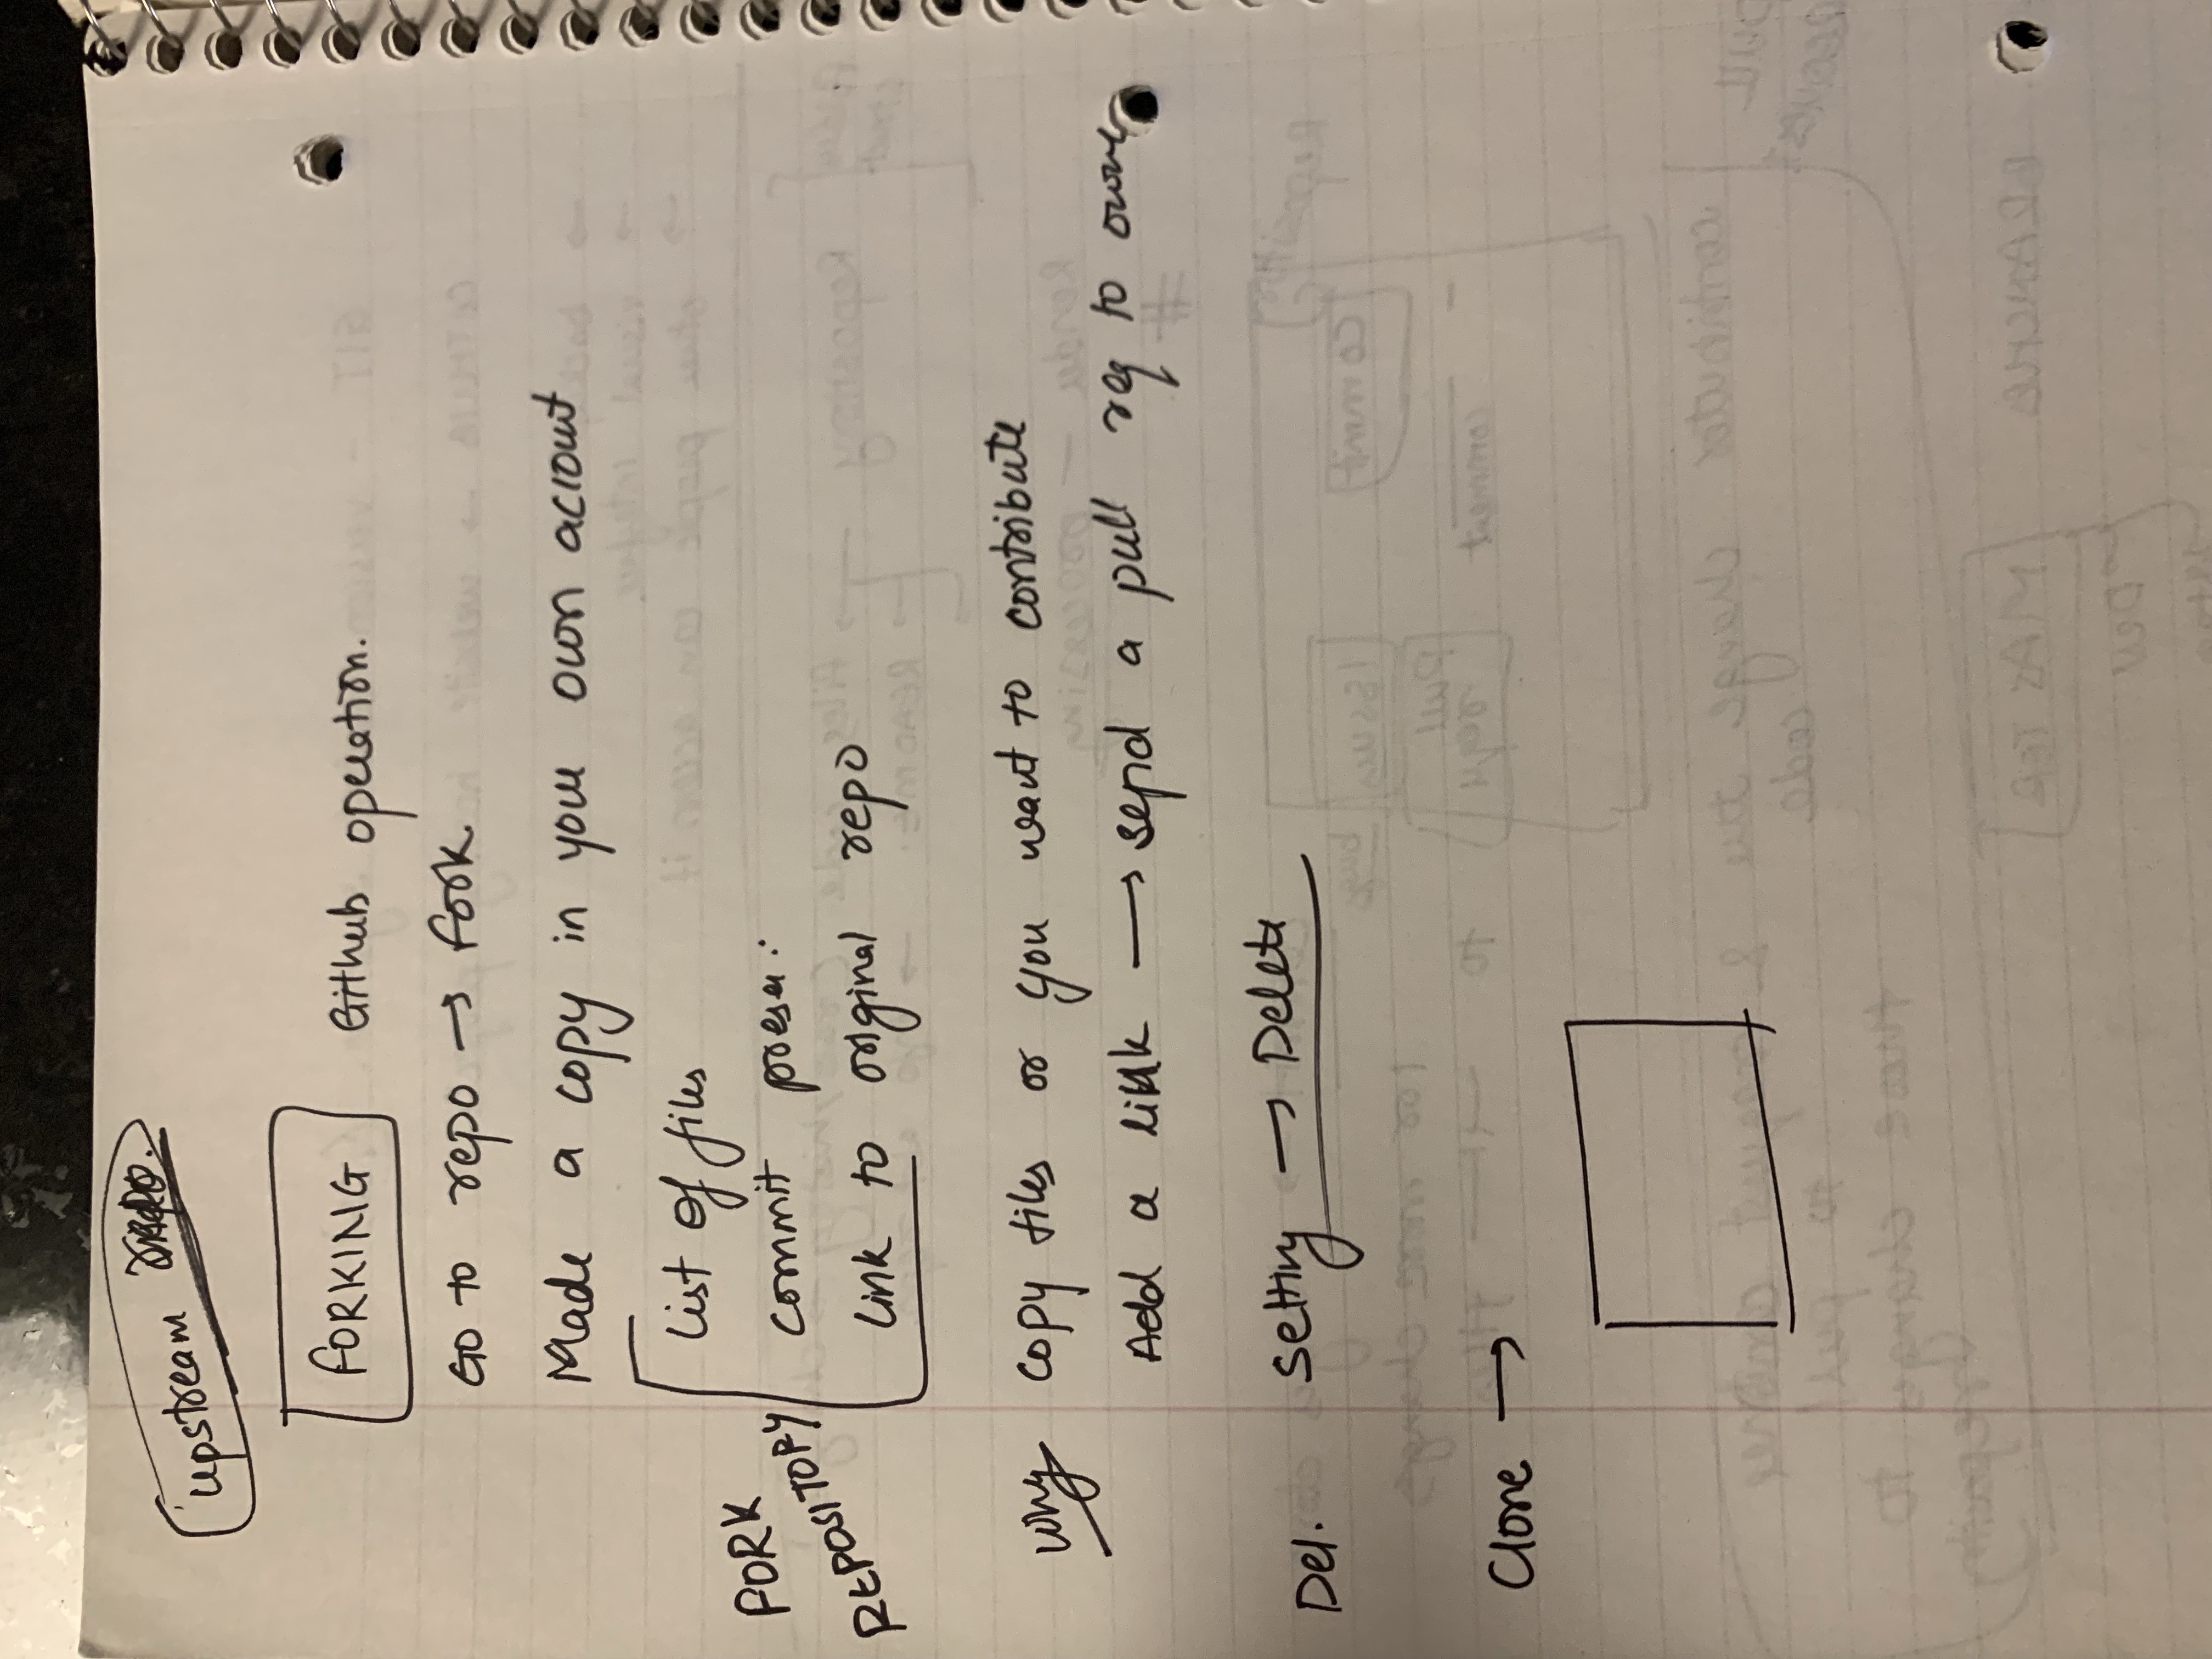 upstream repo.
FORKING Github operation.
Go to repo → fork.
Made a copy in your own account
FORK REPOSITORY
List of files
commit prese..
link to original repo
Why copy files or you want to contribute
Add a link → send a pull req to owner
Del. setting → Delete
Clone →